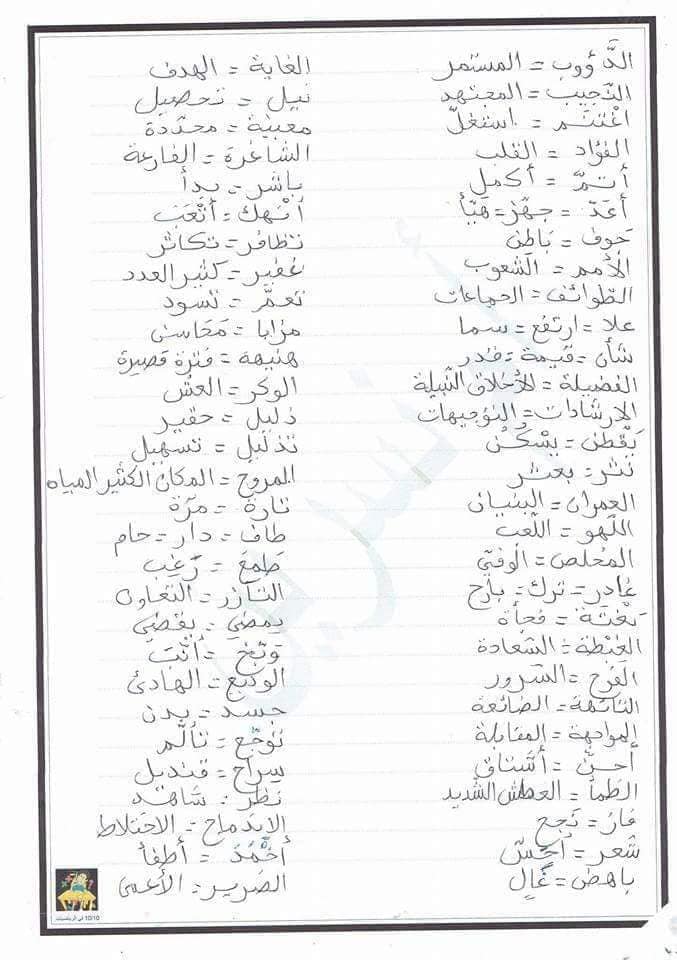 الدَّؤوب = المستمر
النّجيب = المجتهد
اغْتنَم = استغلّ
الفؤاد = القلب
أتمّ = أكمل
أعَدّ = جهّز = هَيّأ
جوف = بَاطن
الأمم = الشعوب
الطّوائف = الجماعات
علا = ارتفع = سما
شأن = قيمة = قدر
الفضيلة = الأخلاق النّبيلة
الإرشادات = التوجيهات
يَقْطن = يسْكُن
نثر = بعثر
العمران = البنيان
اللّهو = اللّعب
المخلص = الوفيّ
غادر = ترك = بارح
بَغْتة = فجأة
الغبْطة = السّعادة
الفرح = السّرور
التائهة = الضائعة
المواجهة = المقابلة
أحنّ = أشتاق
الظمأ = العطش الشديد
فاز = نجح
شعر = أحسّ
باهض = غالٍ
الغاية = الهدف
نيل = تحصيل
معينة = محدّدة
الشاغرة = الفارغة
باشر = بدأ
أنْهك = أتْعَب
تظافر = تكاثر
غفير = كثير العدد
تعمّ = تسود
مزايا = مَحَاسن
هنيهة = فترة قصيرة
الوكر = العشّ
ذليل = حقير
تذليل = تسهيل
المروج = المكان الكثير المياه
تارة = مرّة
طاف = دار = حام
طَمِعَ = رَغِب
التآزر = التعاون
يمضي = يقضي
وَبّخ = أنّبَ
الوديع = الهادئ
جسد = بدن
توجّع = تألّم
سراج = قنديل
نظر = شاهد
الاندماج = الاختلاط
أخْمَدَ = أطفأ
الضرير = الأعمى
10/10 في الرياضيات